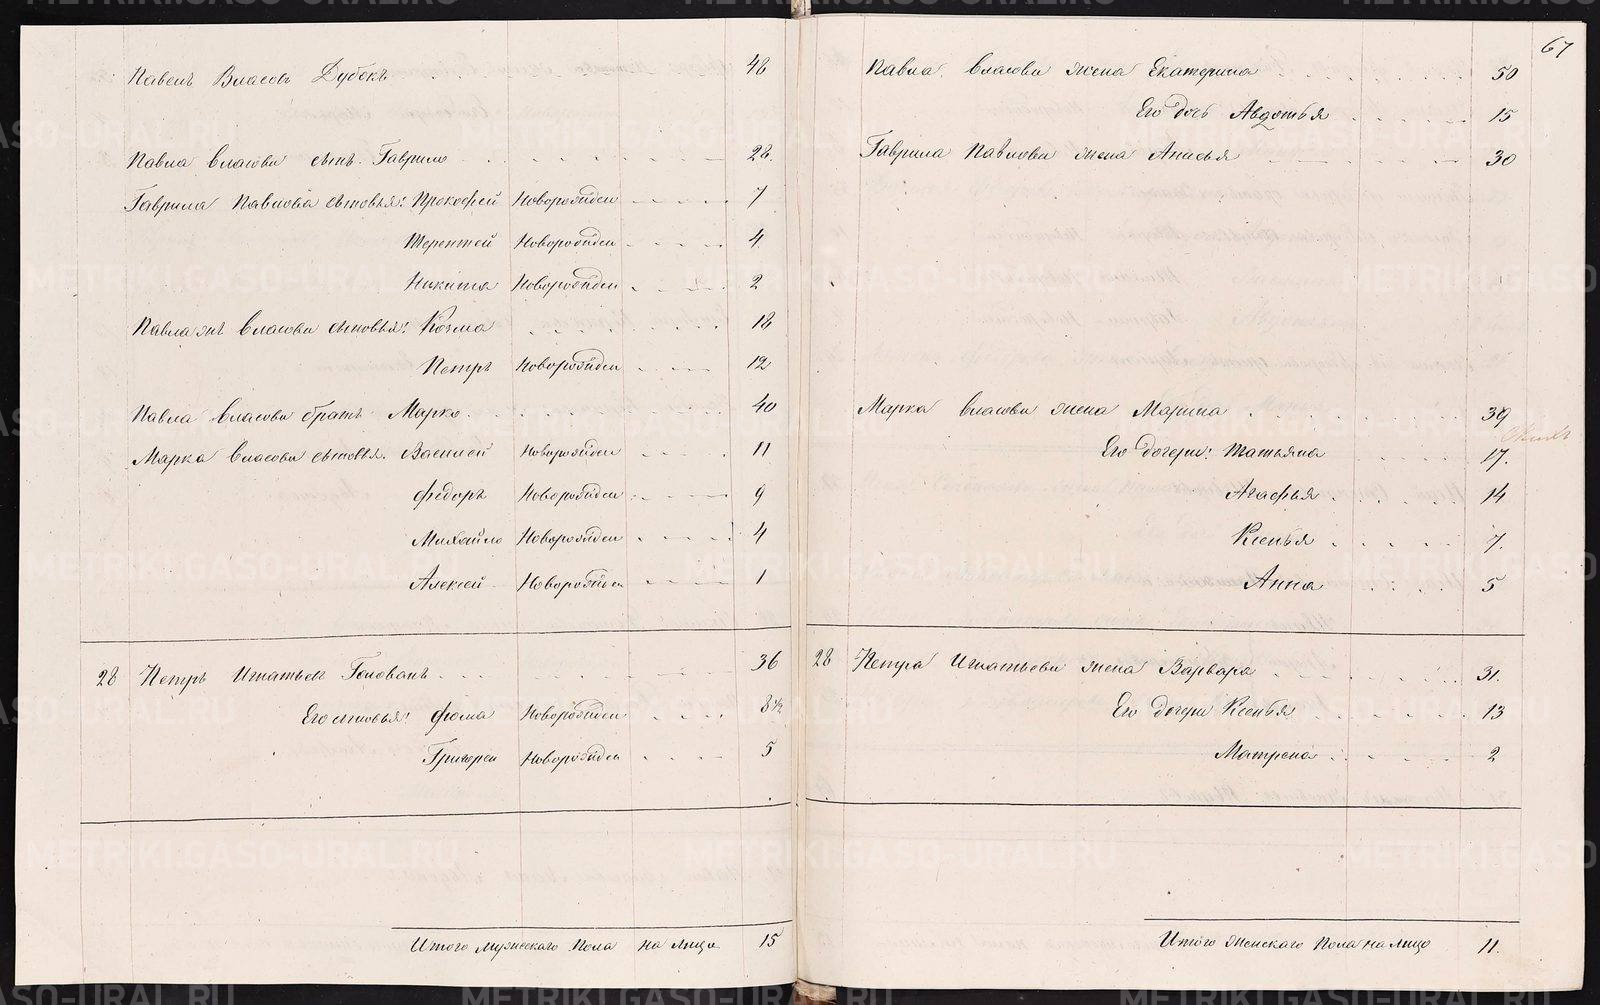 Павелъ Власовъ Дубокъ 48
Павла Власова сынъ Гаврило 28.
Гаврила Павлова сыновья: Прокофей Новорожден 7
Терентей Новорожден 4
Никита Новорожден 2
Павла жъ Власова сыновья: Козма 18
Петръ Новорожден 12
Павла Власова братъ Марко 40
Марка Власова сыновья: Василей Новорожден 11
Федоръ Новорожден 9
Михайло Новорожден 4
Алексей Новорожден 1
28 Петръ Игнатьевъ Голованъ 36
Его сыновья: Фома Новорожден 8 1/2
Григорей Новорожден 5
Итого мужескаго пола на лицо 15
67
Павла Власова жена Екатерина 50
Его дочь Авдотья 15
Гаврила Павлова жена Анисья 30
Марка Власова жена Марина 39
Его дочери: Татьяна 17.
Агафья 14
Ксенья 7.
Анна 5
28 Петра Игнатьева жена Варвара 31.
Его дочери Ксенья 13
Матрена 2
Итого женскаго пола на лицо 11.
METRIKI.GASO-URAL.RU